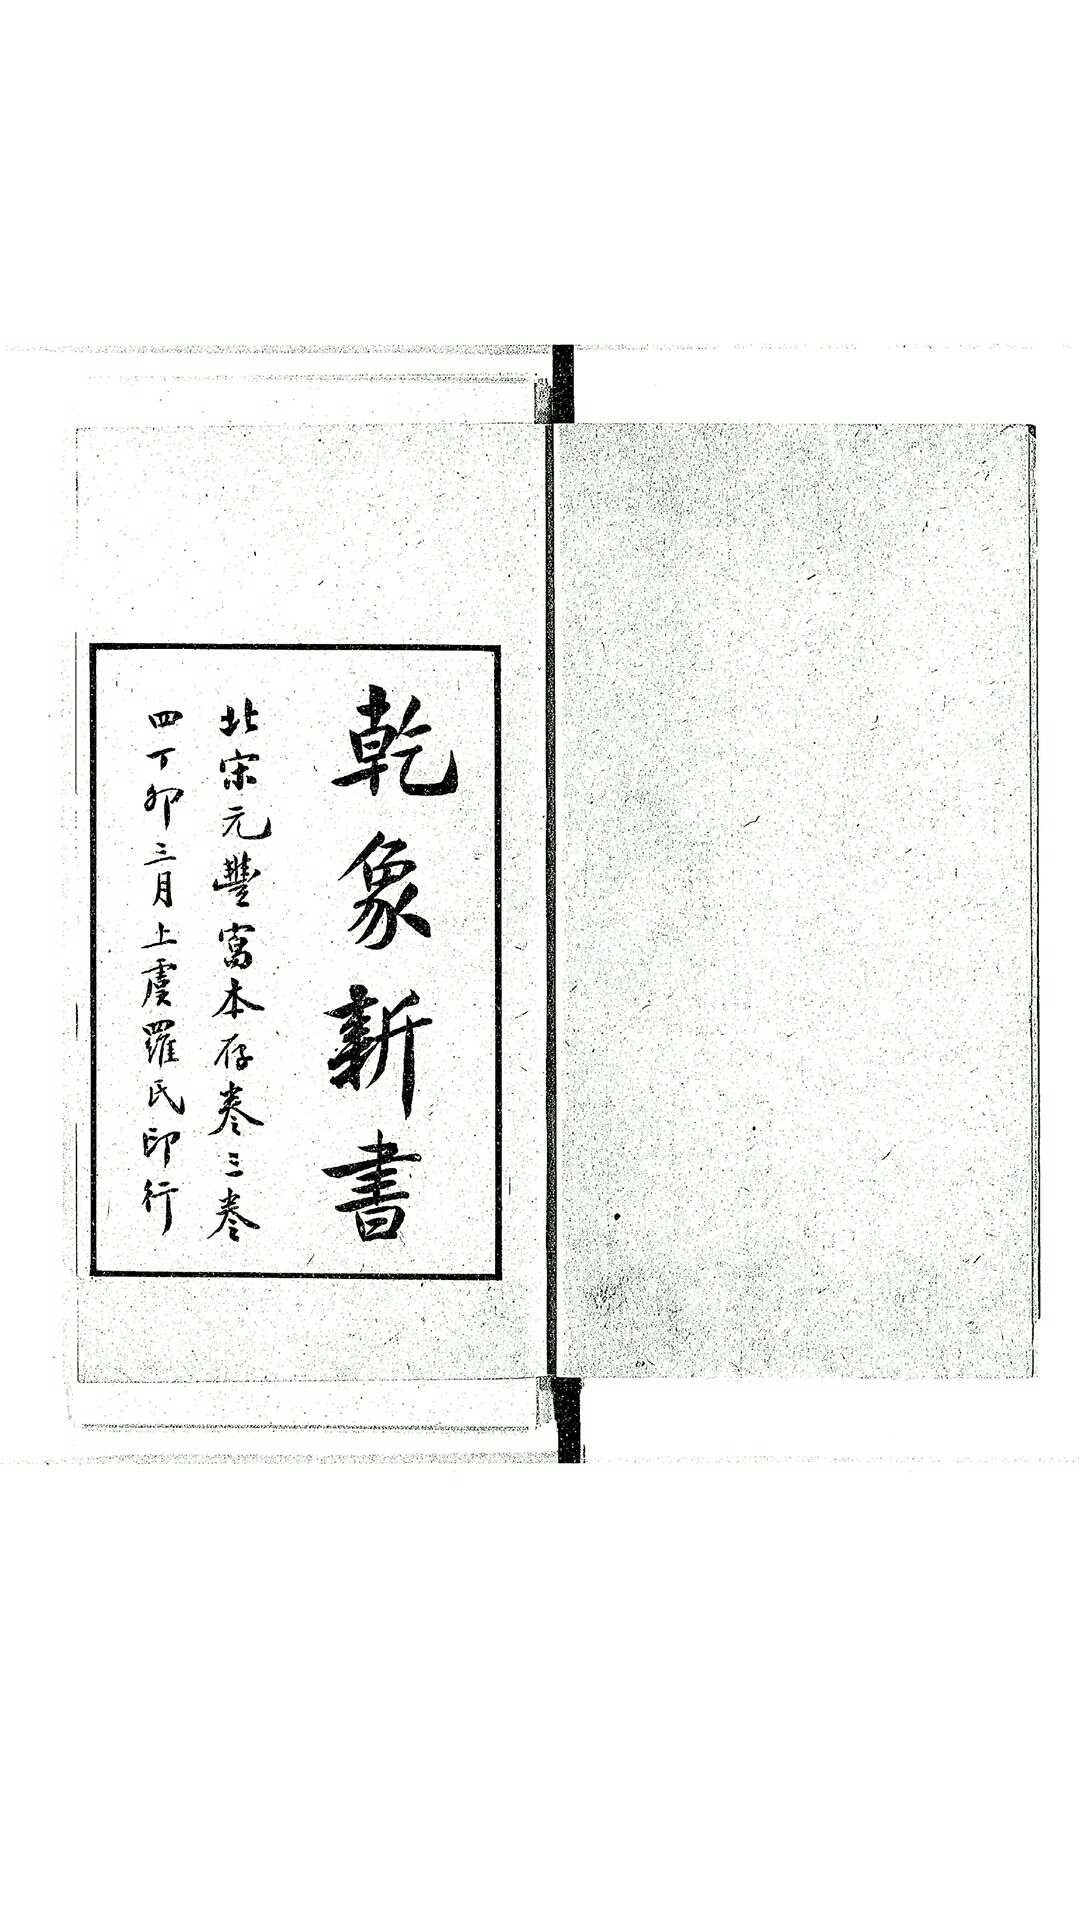 乾象新書
北宋元豐寫本存卷三卷
四丁卯三月上虞羅氏印行